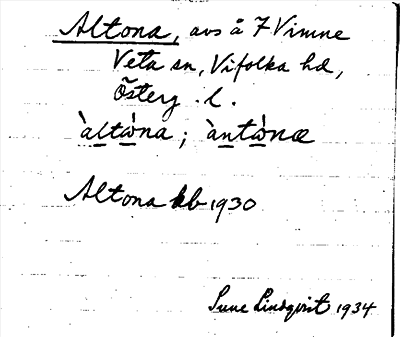 Altona, avs å 7 Vimne
Veta sn, Vifolka hd,
Österg. l.
àltὼna; àntὼnæ
Altona kb 1930
Sune Lindqvist 1934